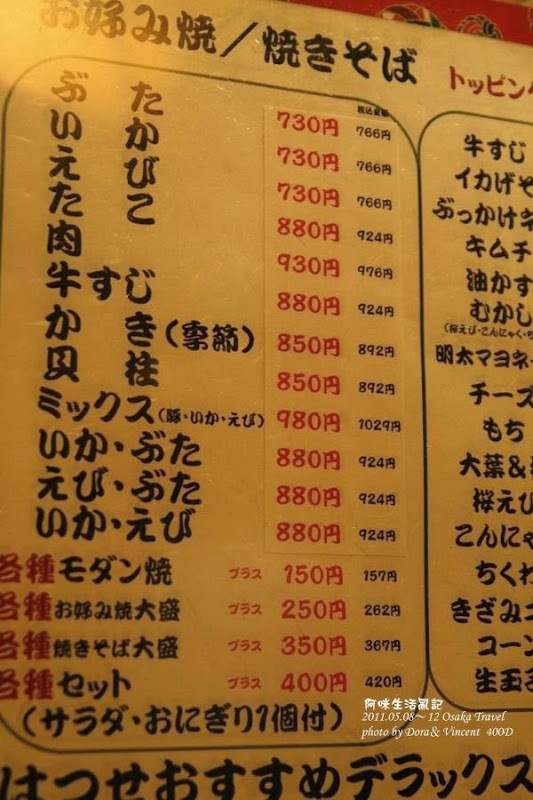 お好み焼/焼きそば
トッピン
税込金額
ぶた 730円 766円
いか 730円 766円
えび 730円 766円
たこ 880円 924円
肉 930円 976円
牛すじ 880円 924円
かき(季節) 850円 892円
貝柱 850円 892円
ミックス(豚・いか・えび) 980円 1029円
いか・ぶた 880円 924円
えび・ぶた 880円 924円
いか・えび 880円 924円
各種モダン焼 プラス 150円 157円
各種お好み焼大盛 プラス 250円 262円
各種焼きそば大盛 プラス 350円 367円
各種セット プラス 400円 420円
(サラダ・おにぎり1個付)
牛すじ
イカげそ
ぶっかけネ
キムチ
油かす
むかし
(桜えび・こんにゃく・ち
明太マヨネー
チーズ
もち
大葉&
桜えび
こんにゃ
ちくわ
きざみ
コーン
生玉子
はつせおすすめデラックス
阿咪生活亂記
2011.05.08~12 Osaka Travel
photo by Dora & Vincent 400D